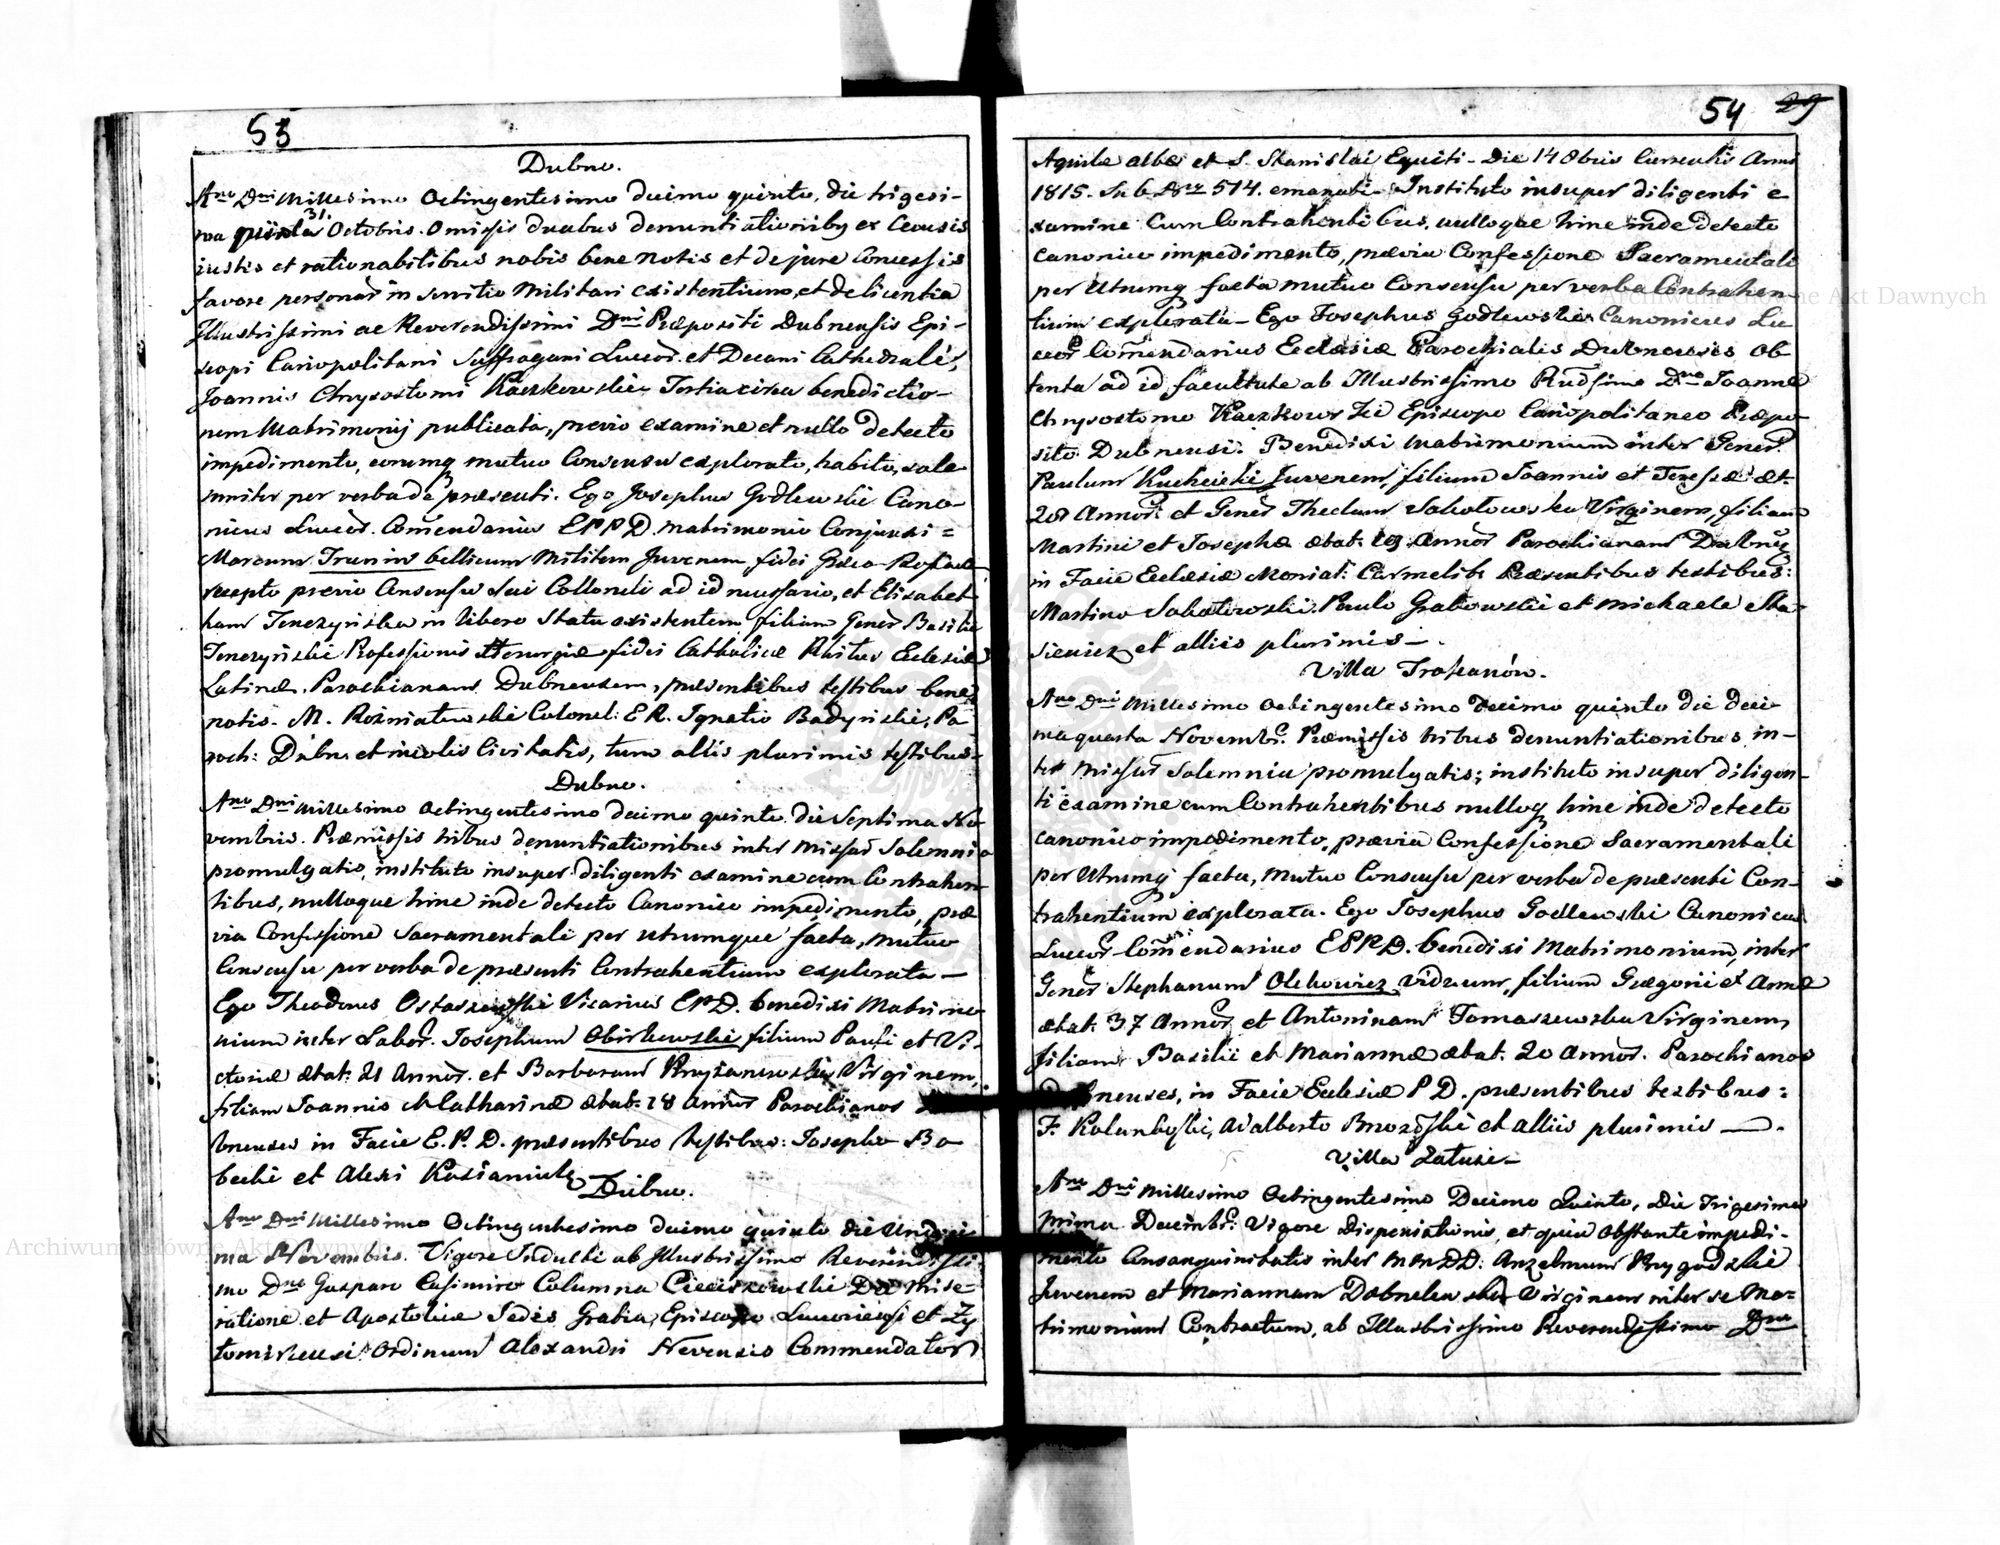 53
Dubno.
Ano Dni Millesimo Octingentesimo decimo quinto, die trigesi-
ma 31. Octobris. Omissis duabus denuntiationibg ex Causis
iustis et rationabilibus nobis bene notis et de jure Concessis
favore personar in servitio Militari existentium, et de licentia
Illustrissimi ac Reverendissimi Dni Præpositi Dubnensis Epi-
scopi Canopolitani Suffragani Luceor. et Decani Cathedralis,
Joannis Chrysostomi Kaczkowskie Tertia benedictio-
nem Matrimonij publicata, previo examine et nullo detecto
impedimento, eorumq mutuo Consensu explorato, habito, sole
mniter per verba de præsenti. Ego Josephus Godlewski Cano-
nicus Luceor. Comendarius EPPD. matrimonio Conjunxi =
Marcum Trunin bellicum Militem Juvenem fidei Græco-
recepto previo Consensu Sui Colloneli ad id necessario, et Elisabet
ham Tenczyńska in libero Statu existentem filiam Gener Basilii
Tenczyński Professionis fidei Catholicæ Ritus Eclesiæ
Latinæ. Parochianam Dubnensem, præsentibus testibus bene
notis. M. Rozniatowski Colonel: E R. Ignatio Badyński, Pa
roch: Dubn. et incolis Civitatis, tum allis plurimis testibus-
Dubno.
Ano Dni Millesimo Octingentesimo decimo quinto die Septima No
vembris. Præmissis tribus denuntiationibus inter Missar Solemnia
promulgatis, instituto insuper diligenti examine cum Contrahen
tibus, nulloque hinc inde detecto Canonico impedimento, præ
via Confessione Sacramentali per utrumque facta, Mutuo
Consensu per verba de præsenti Contrahentium explorata —
Ego Theodorus Ostaszewski Vicarius EPD. benedixi Matrimo
nium inter Labor. Josephum Obirkowski filium Pauli et Vi-
ctoriæ ætat: 21 Annor. et Barbaram Virginem,
filiam Joannis et Catharinæ ætat: 18 Annor Parochianos
bnenses in Facie E. P. D. præsentibus testibus: Josepho Bo
becki et Alexi
Dubno.
Ano Dni Millesimo Octingentesimo decimo quinto die Undeci
ma Novembris. Vigore Indulti ab Illustrissimo Reverendissi
mo Dno Gaspare Casimiro Columna Cieciszowski Dei Mise-
ratione et Apostolicæ Sedis Gratia Episcopo Luceoriensi et Zy
tomiriensi Ordinum Alexandri Nevensis Commendatori
54 29
Aquilæ albæ et S. Stanislai Equiti - Die 14 8bris Currentis Anni
1815. Sub Nro 514. emanati - Instituto insuper diligenti e
xamine Cum Contrahentibus, nulloque hinc inde detecto
Canonico impedimento, prævia Confessione Sacramentali
per Utrumq facta mutuo Consensu per verba Contrahen
tium explorata - Ego Josephus Godlewski Canonicus Lu
ceor Comendarius Ecclesiæ Parochialis Dubnensis Ob
tenta ad id facultate ab Illustrissimo Rndssimo Dno Joanne
Chrysostomo Kaczkowski Episcopo Canopolitaneo Præpo
sito Dubnensi. Benedixi Matrimonium inter Gener.
Paulum Kucheiski Juvenem, filium Joannis et Teressæ æt.
28 Annor. et Gener Theclam Sokołowska Virginem, filiam
Martini et Josephæ ætat: 19 Annor Parochianam
in Facie Ecclesiæ Monial: Carmelit. Præsentibus testibus:
Martino Sokołowski. Paulo Grabowski et Michaele Sta
siewicz et alliis plurimis —.
Villa Trosćanów.
Ano Dni Millesimo Octingentesimo Decimo quinto die deci
ma quarta Novembr. Præmissis tribus denuntiationibus in-
ter Missar Solemnia promulgatis; instituto insuper diligen-
ti examine cum Contrahentibus nulloq hinc inde detecto
canonico impedimento, prævia Confessione Sacramentali
per Utrumq facta, Mutuo Consensu per verba de præsenti Con-
trahentium explorata. Ego Josephus Godlewski Canonicus
Luceor Comendarius EPPD. benedixi Matrimonium, inter
Gener Stephanum Olchowicz viduum, filium Gregorii et Annæ
ætat: 37 Annor, et Antoninam Tomaszewska Virginem,
filiam Basilii et Mariannæ ætat: 20 annor. Parochianos
Dubnenses, in Facie Eclesiæ P D. præsentibus testibus:
F. adalberto et alliis plurimis —.
Villa Załuże —
Ano Dni Millesimo Octingentesimo Decimo Quinto, Die Trigesima
Prima Decembr. Vigore Dispensationis, et quia Obstante impedi-
mento Consanguinitatis inter MMDD: Anzelmum Przygodzki
Juvenem et Mariannam Virginem inter se Ma-
trimonium Contractum, ab Illustrissimo Reverendissimo Dno
Archiwum Główne Akt Dawnych
Archiwum Główne Akt Dawnych